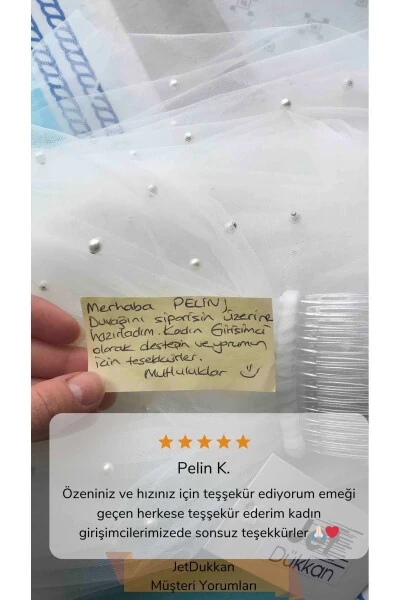 Merhaba PELİN!
Duvağını siparişin üzerine
hazırladım. Kadın Girişimci
olarak desteğin ve yorumun
için teşekkürler.
Mutluluklar :)
Pelin K.
Özeniniz ve hızınız için teşşekür ediyorum emeği
geçen herkese teşşekür ederim kadın
girişimcilerimizede sonsuz teşekkürler 🙏🏻❤️
Dükkan
JetDukkan
Müşteri Yorumları